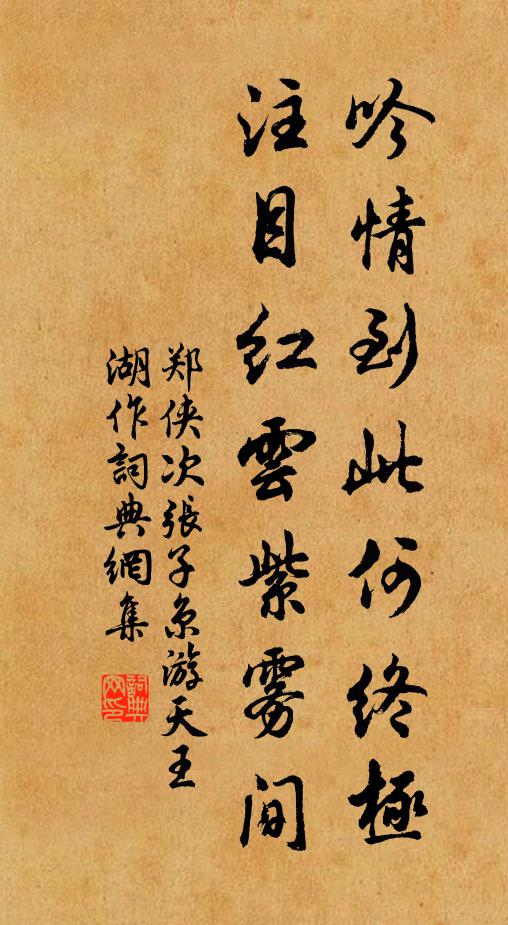 吟情到此何終極
注目紅雲紫雾間
郑侠次張子京游天王
湖作詞典網集
詞典网印